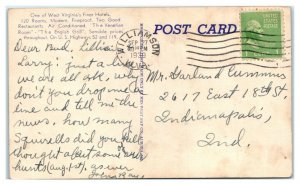 One of West Virginia's Finer Hotels.
120 Rooms, Modern, Fireproof, Two Good
Restaurants. Air-Conditioned. "The Venetian
Room" - "The English Grill". Sensible prices
throughout. On U. S. Highways 52 and 119.
POST CARD
WILLIAMSON
1939
Dear Bud, Lillie
Larry: Just a line
we are all ok, why
don't you drop me a
line and tell me the
news, how many
Squirrels did you kill
thought about some
hunts (Aug 1st), as ever
Mr. Garland Cummins
2617 East 18th St
Indianapolis,
Ind.